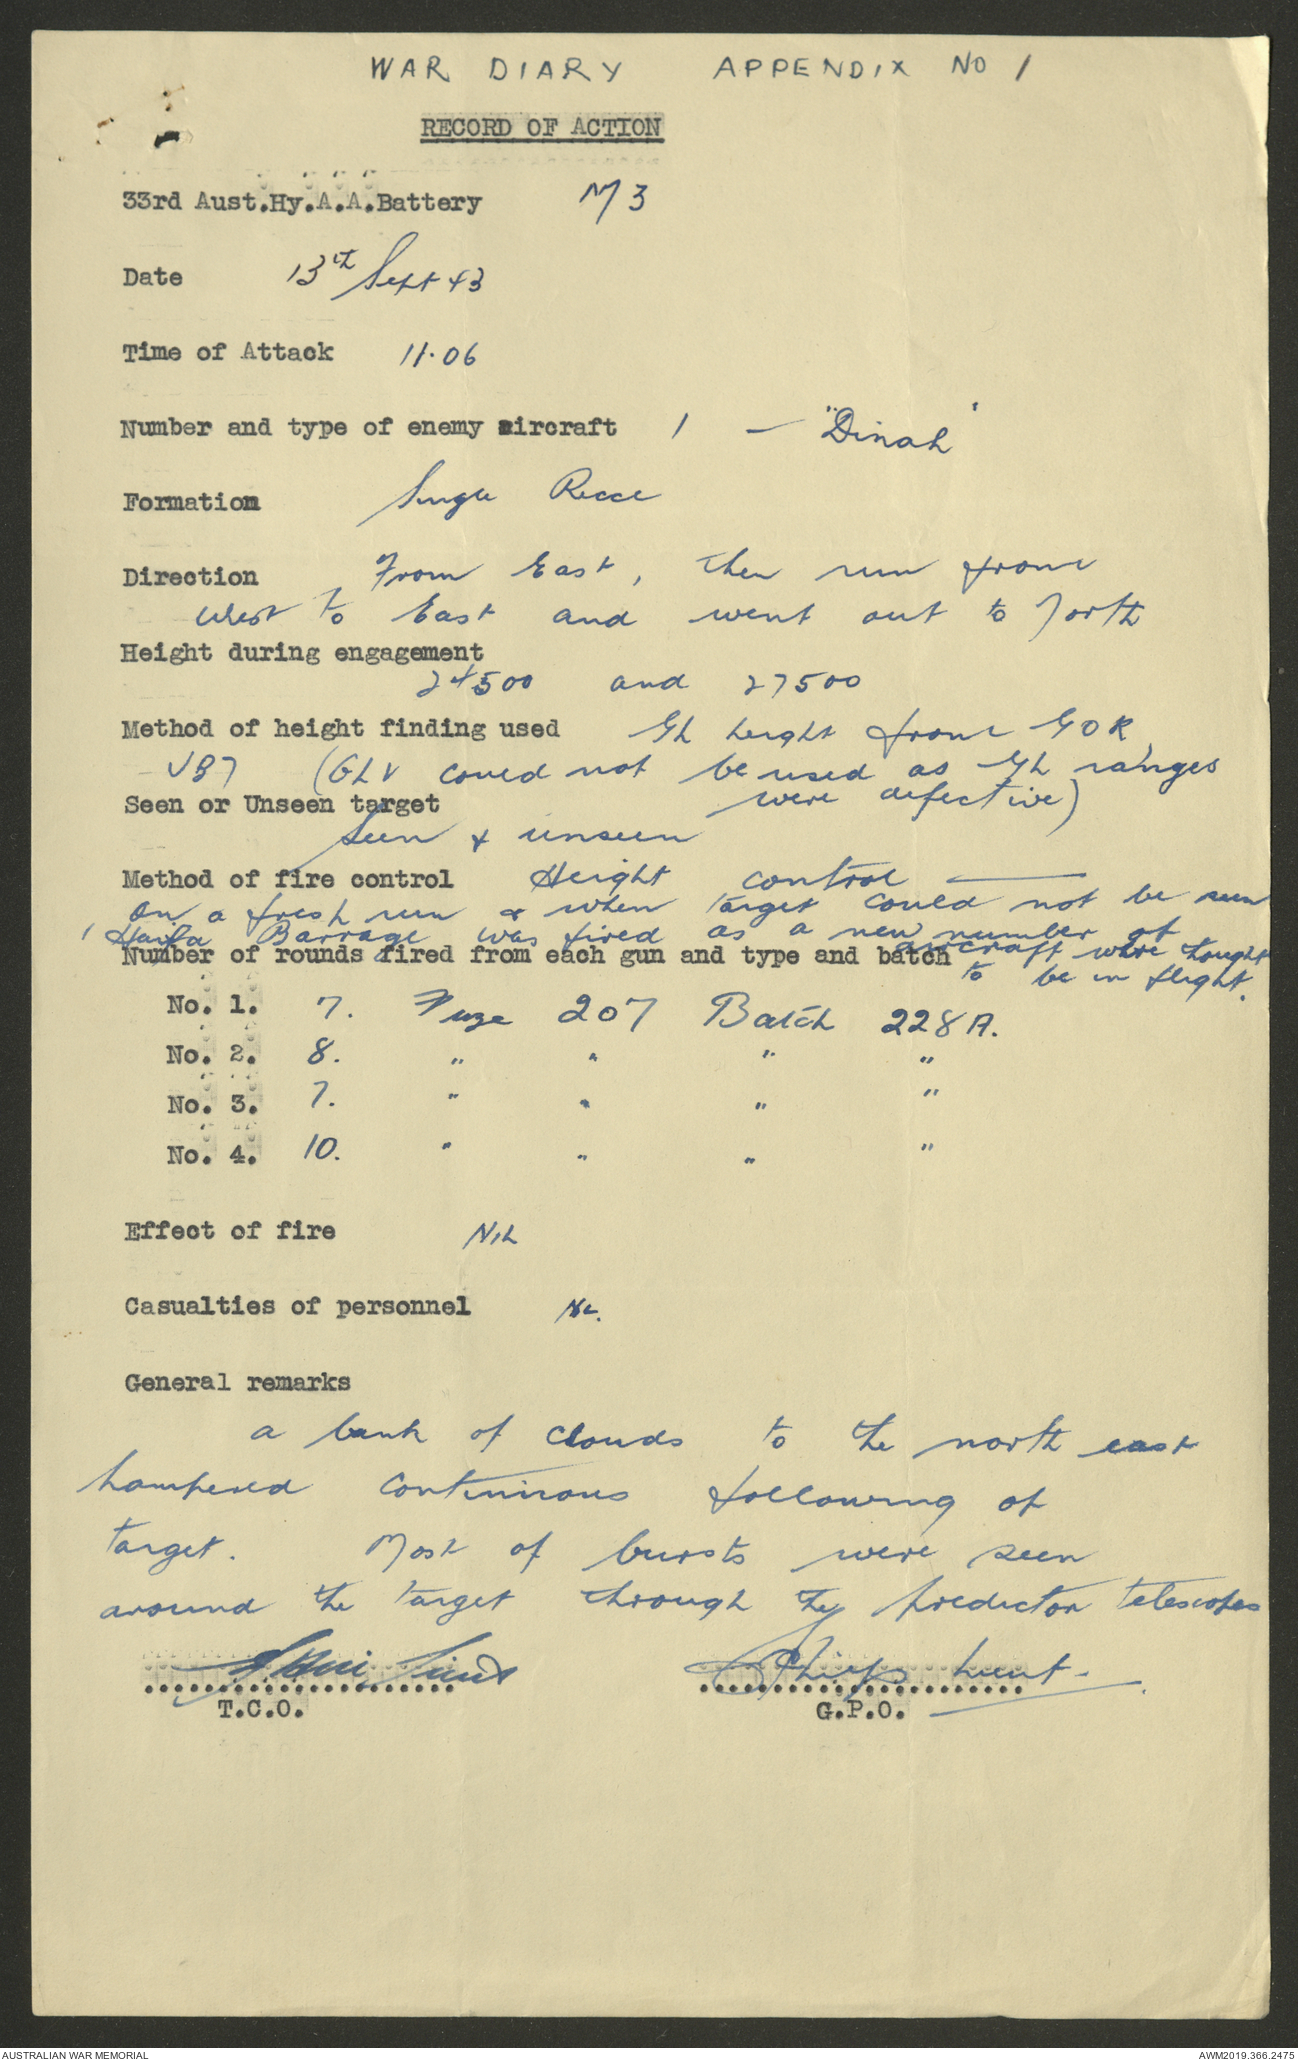 WAR DIARY APPENDIX NO 1
RECORD OF ACTION
33rd Aust.Hy.A.A.Battery M3
Date 13th Sept 43
Time of Attack 11.06
Number and type of enemy aircraft 1 — "Dinah"
Formation Single Recce
Direction From East, then run from
West to East and went out to North
Height during engagement
24500 and 27500
Method of height finding used Gh height from GOR
(could not be used as Gh ranges
Seen or Unseen target were defective)
Seen & unseen
Method of fire control Height control —
on a fresh run & when target could not be seen
1 Haifa Barrage was fired as a new number of
Number of rounds fired from each gun and type and batch aircraft were thought
to be in flight.
No. 1. 7. Fuze 207 Batch 228A.
No. 2. 8. " " " "
No. 3. 7. " " " "
No. 4. 10. " " " "
Effect of fire Nil
Casualties of personnel
General remarks
a bank of clouds to the north east
hampered continuous following of
target. Most of bursts were seen
around the target through the predictor telescopes
Lieut Lieut.
T.C.O. G.P.O.
AUSTRALIAN WAR MEMORIAL AWM2019.366.2475